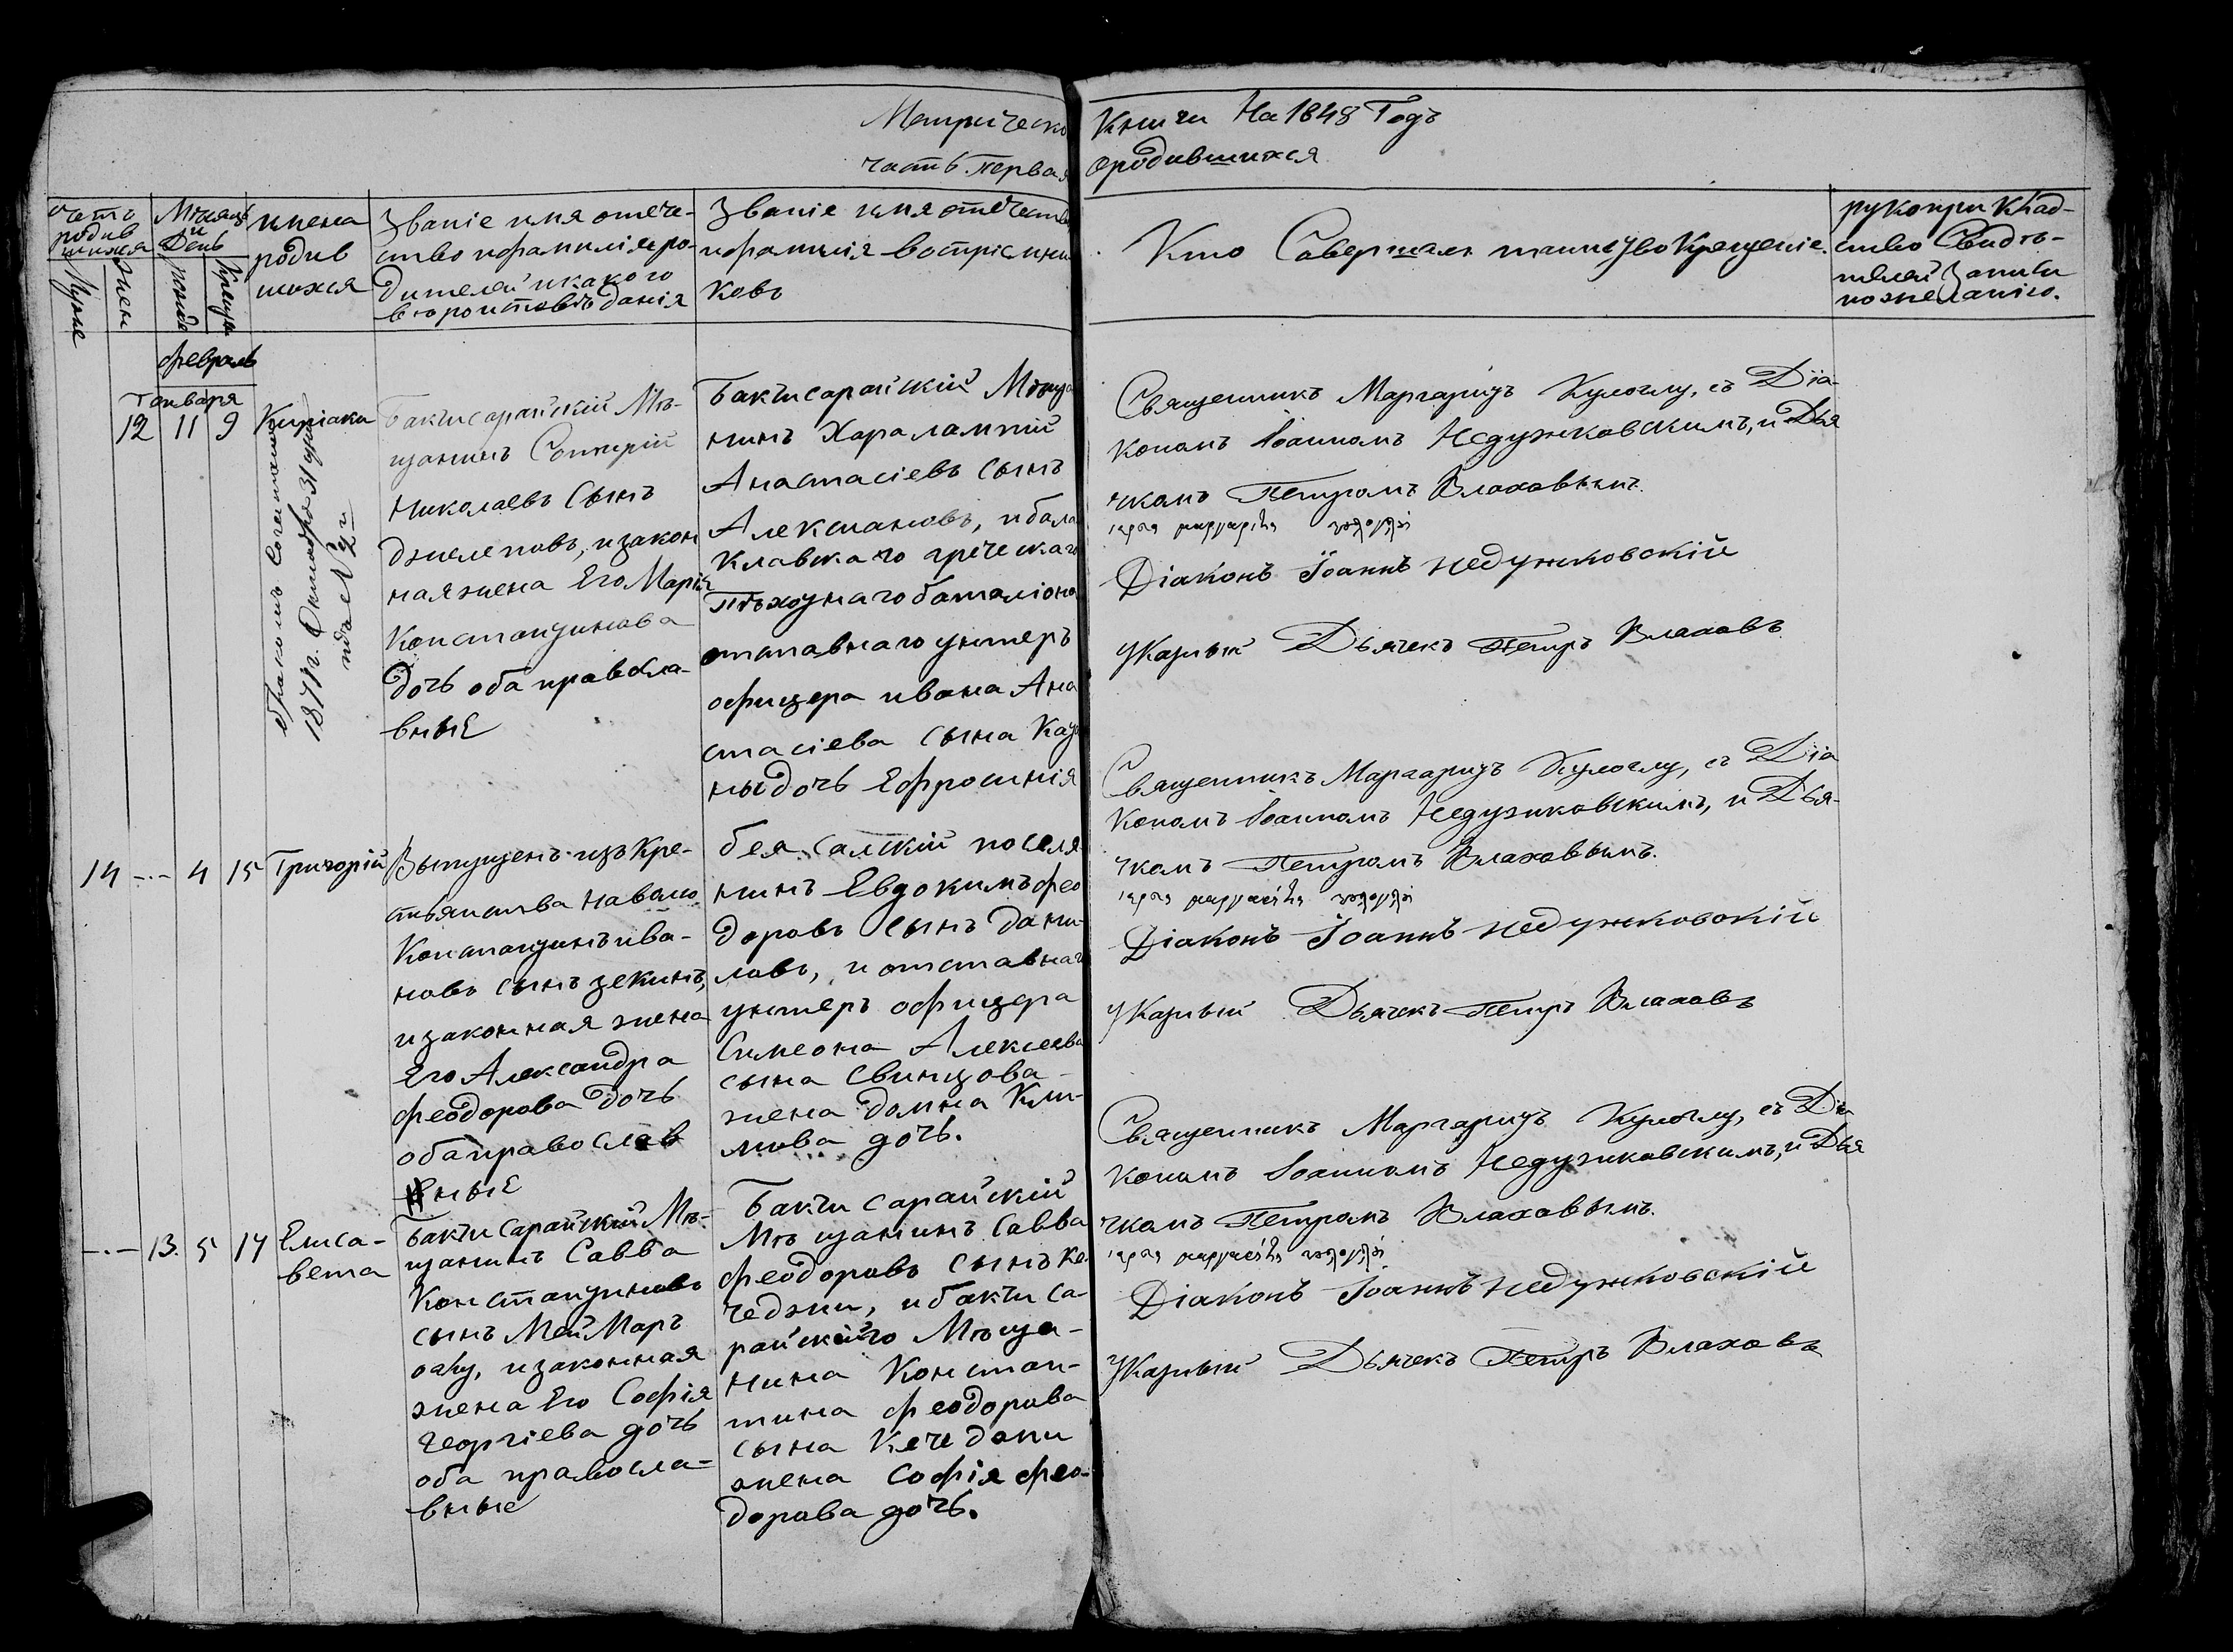 Метрическо
часть первая
Книги На 1848 Годъ
о родившихся
счетъ родив шихся
Муже
жен
Мѣсяцъ и День
рожде
Креще
имена
родив
шихся
Званіе имя отече-
ство и фамилія ро-
дителей и какого
вѣроисповѣданія
Званіе имя отечеств
и фамилія воспріемни
ковъ
Кто Совершалъ таинство Крещеніе.
рукоприклад-
ство Свидѣ-
телей Записи
по желанію.
февраль
Января
12 11 9
Киріаки
1871 г. Октября 31
Бакчисарайскій Мѣ-
щанинъ Сотирій
Николаевъ Сынъ
джелеповъ, и закон
ная жена Его Марія
Константинова
дочь оба правосла-
вныЕ
Бакчисарайскій Мѣща
нинъ Харалампій
Анастасіевъ Сынъ
Алексиановъ, и бала
Клавскаго греческаго
Пѣхотнаго баталіона
отставнаго унтеръ
офицера ивана Ана
стасіева Сына Кацо
ны дочь Ефросинія
Священникъ Маргаритъ Кулоглу, съ Діа-
кономъ Іоанномъ Недужковскимъ, и Дья
чкомъ Петромъ Влаховымъ.
Діаконъ Іоаннъ недужковскій
Указный Дьячекъ Петръ Влаховъ
14 -.- 4 15
Григорій
Выпущенъ изъ Кре-
стьянства Навсю
Константинъ ива-
новъ сынъ зекинъ,
и законная жена
Его Александра
феодорова дочь
оба православ
ныЕ
бея салскій поселя
нинъ Евдокимъ фео
доровъ сынъ Дани-
ловъ, и отставнаг
унтеръ офицера
Симеона Алексеева
сына Свинцова -
жена Домна Кли-
мова дочь.
Священникъ Маргаритъ Кулоглу, съ Діа
кономъ Іоанномъ Недужковскимъ, и Дья-
чкомъ Петромъ Влаховымъ.
Діаконъ Іоаннъ недужковскій
Указный Дьячекъ Петръ Влаховъ
-.- 13. 5 14
Елиса-
вета
Бакчисарайскій Мѣ-
щанинъ Савва
Константиновъ
сынъ МейМаръ
оглу, и законная
жена Его Софія
Георгіева дочь
оба правосла-
вные
Бакчисарайскій
Мѣщанинъ Савва
феодоровъ сынъ Ке
чеджи, и бакчиса-
райскаго Мѣща-
нина Констан-
тина феодорова
сына Кечеджи
жена Софія фео-
дорова дочь.
Священникъ Маргаритъ Кулоглу, съ Діа
кономъ Іоанномъ Недужковскимъ, и Дья
чкомъ Петромъ Влаховымъ.
Діаконъ Іоаннъ недужковскій
Указный Дьячекъ Петръ Влаховъ